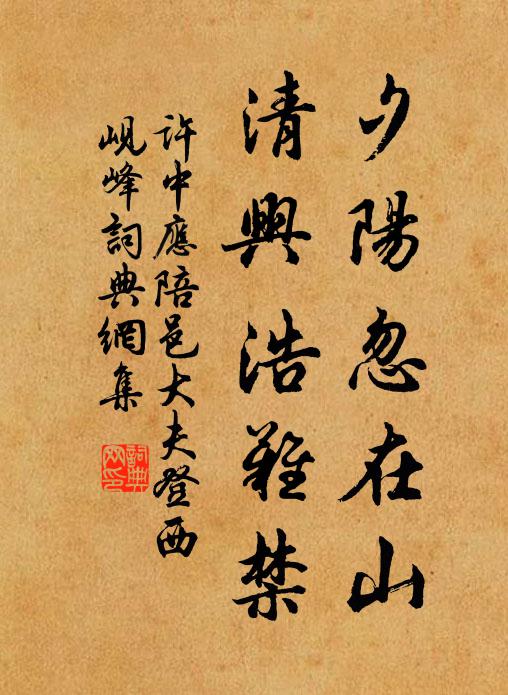 夕陽忽在山
清興浩難禁
許中應陪邑大夫登西
峴峰詞典網集
詞典
網印